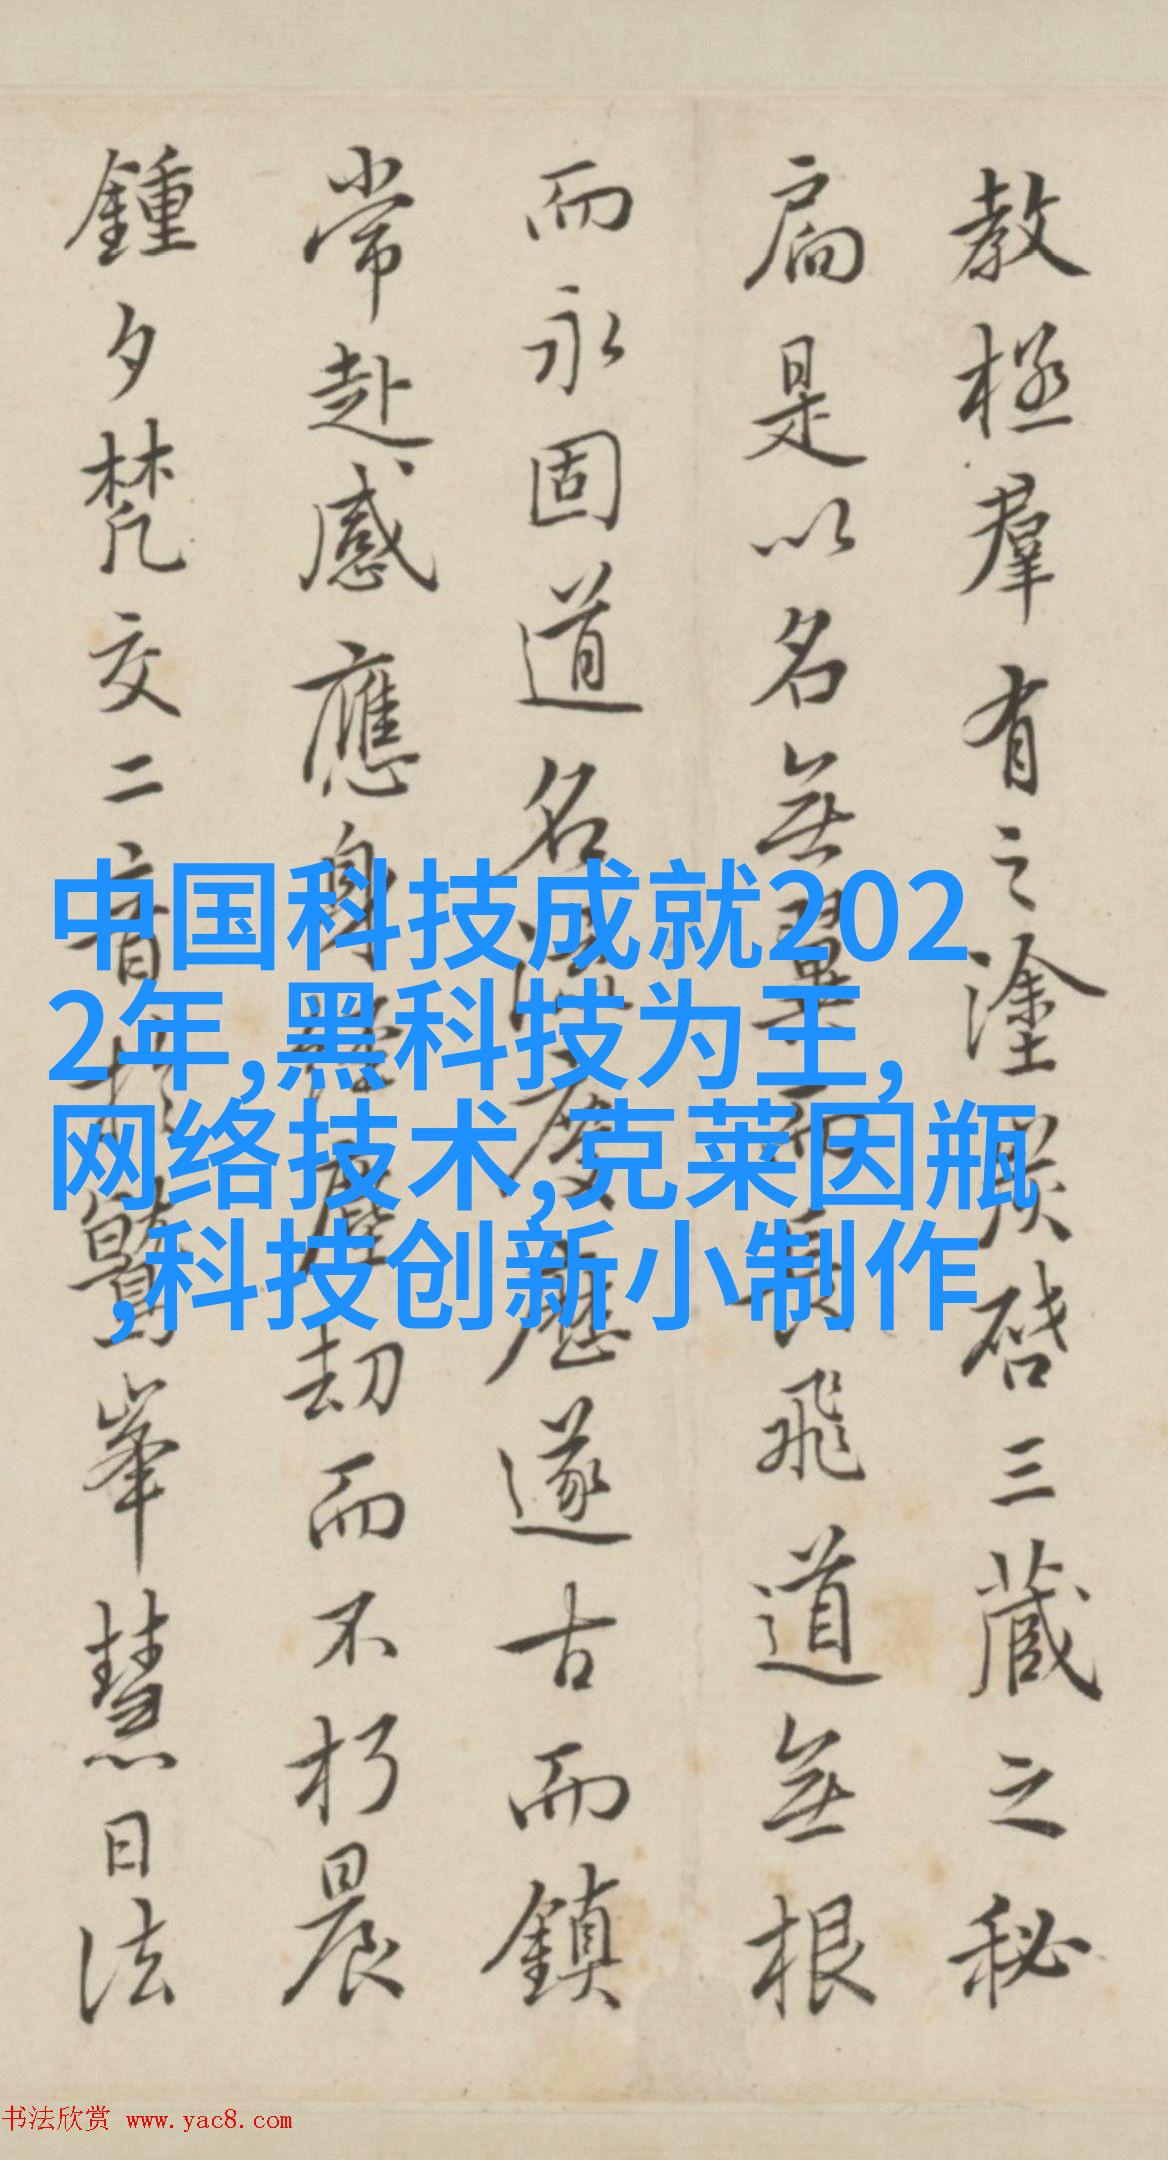 教拯羣有之塗炭啓三藏之秘
扃是以名無翼而長飛道無根
而永固道名流慶歷遂古而鎮
常赴感應身經塵劫而不朽晨
鍾夕梵交二音於鷲峯慧日法
中国科技成就202
2年,黑科技为王,
网络技术,克莱因瓶
,科技创新小制作
书法欣赏 www.yac8.com